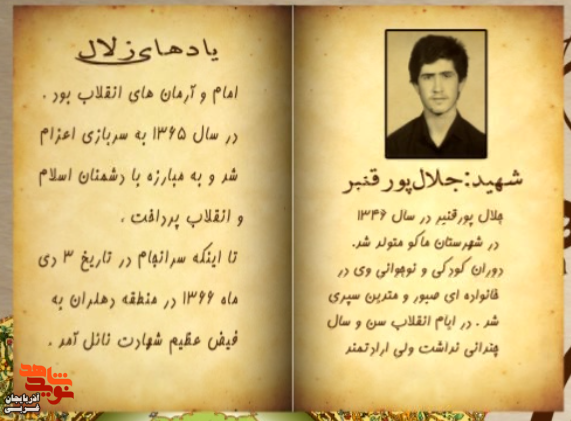 شهید: جلال پور قنبر
جلال پورقنبر در سال ۱۳۴۶
در شهرستان ماکو متولد شد.
دوران کودکی و نوجوانی وی در
خانواده ای صبور و متدین سپری
شد. در ایام انقلاب سن و سال
چندانی نداشت ولی ارادتمند
یادهای زلال
امام و آرمان های انقلاب بود.
در سال ۱۳۶۵ به سربازی اعزام
شد و به مبارزه با دشمنان اسلام
و انقلاب پرداخت،
تا اینکه سرانجام در تاریخ ۳ دی
ماه ۱۳۶۶ در منطقه دهلران به
فیض عظیم شهادت نائل آمد.
نوید شاهد
آذربایجان
غربی